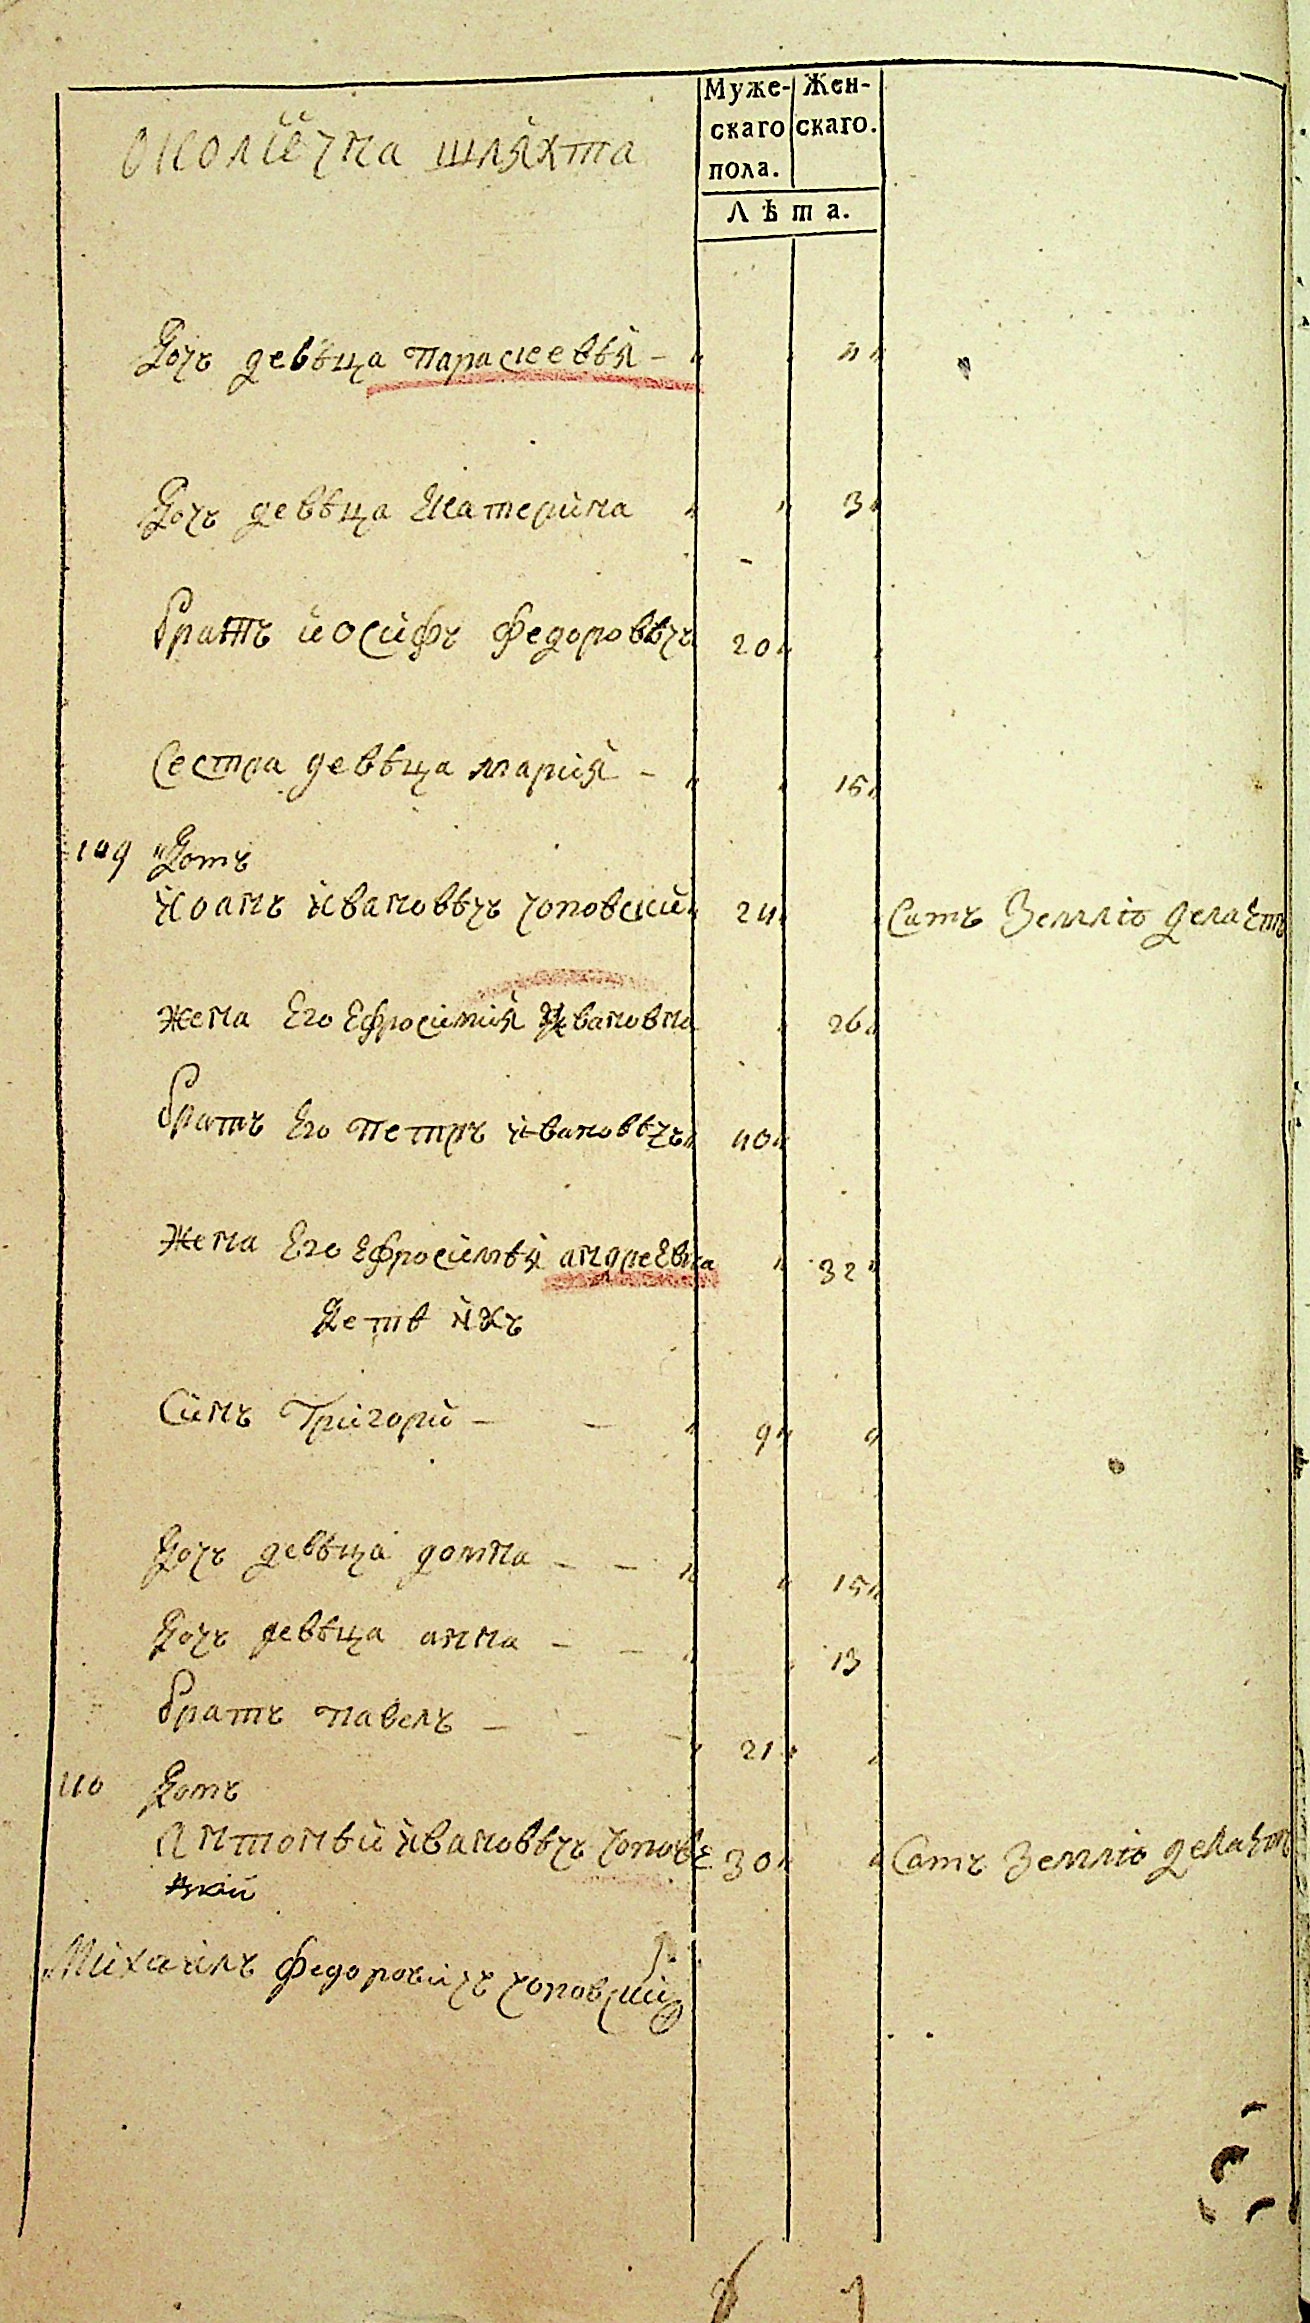 Муже- Жен-
скаго скаго.
пола.
Лѣта.
околична шляхта
Дочъ девѣца Параскеввѣя — „ „ 4 „
Дочъ девѣца Екатерина „ „ 3 „
братъ иосифъ федоровѣчъ 20 „ „
Сестра девѣца мария — „ „ 15 „
109 Домъ
иоанъ ивановѣчъ чоповский 24 „ Самъ Землю делаетъ
жена Его Ефросиния ивановна „ 26 „
братъ Его петръ ивановѣчъ „ 40 „
Жена Его Ефросинѣя андреЕвна „ 32 „
Детѣ ихъ
Синъ Григори — — „ 9 „ „
Дочъ девѣца домна — — „ „ 15 „
Дочъ девѣца анна — — „ „ 13
братъ павелъ — — — „ 21 „ „
110 Домъ
Антонѣй ивановѣчъ чоповс 30 „ „ Самъ Землю делаетъ
кий
Михаилъ федоровичъ чоповский